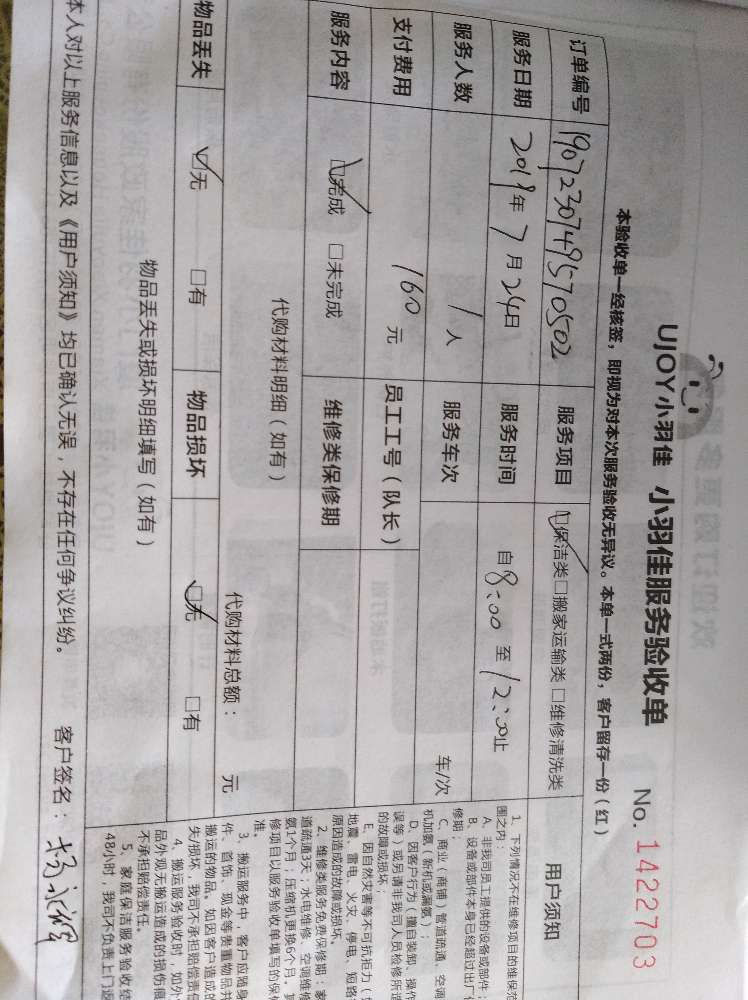 UJOY小羽佳 小羽佳服务验收单 No. 1422703
本验收单一经核签，即视为对本次服务验收无异议。本单一式两份，客户留存一份（红）
订单编号 190723074957050​2 服务项目 ☑保洁类□搬家运输类□维修清洗类
服务日期 2019年7月24日 服务时间 自8:00至12:00止
服务人数 1人 服务车次 车/次
支付费用 160元 员工工号（队长）
服务内容 ☑完成 □未完成 维修类保修期
代购材料明细（如有） 代购材料总额： 元
物品丢失 ☑无 □有 物品损坏 ☑无 □有
物品丢失或损坏明细填写（如有）
本人对以上服务信息以及《用户须知》均已确认无误，不存在任何争议纠纷。 客户签名：
用户须知
1、下列情况不在维修项目的维保范
围之内：
A、非我司员工提供的设备或部件；
B、设备或部件本身已经超过出厂
修期；
C、商业（商铺）管道疏通、空调
机加氨（新机或漏氨）；
D、因客户行为（擅自装卸、操作
误等）或另请非我司人员检修所造
的故障或损坏；
E、因自然灾害等不可抗拒力（
地震、雷电、火灾、停电、短路
原因造成的故障或损坏。
2、维修类服务免费保修期：
道疏通3天；水电维修、空调维修
氨1个月；压缩机更换6个月。
修项目以服务验收单填写的保
准。
3、搬运服务中，客户应随身
件、首饰、现金等贵重物品并
搬运的物品。如因客户造成的
失/损坏，我司不承担赔偿责任
4、搬运服务验收时，如外
品外观无搬运造成的损伤痕
不承担赔偿责任。
5、家庭保洁服务验收结
48小时，我司不负责上门返